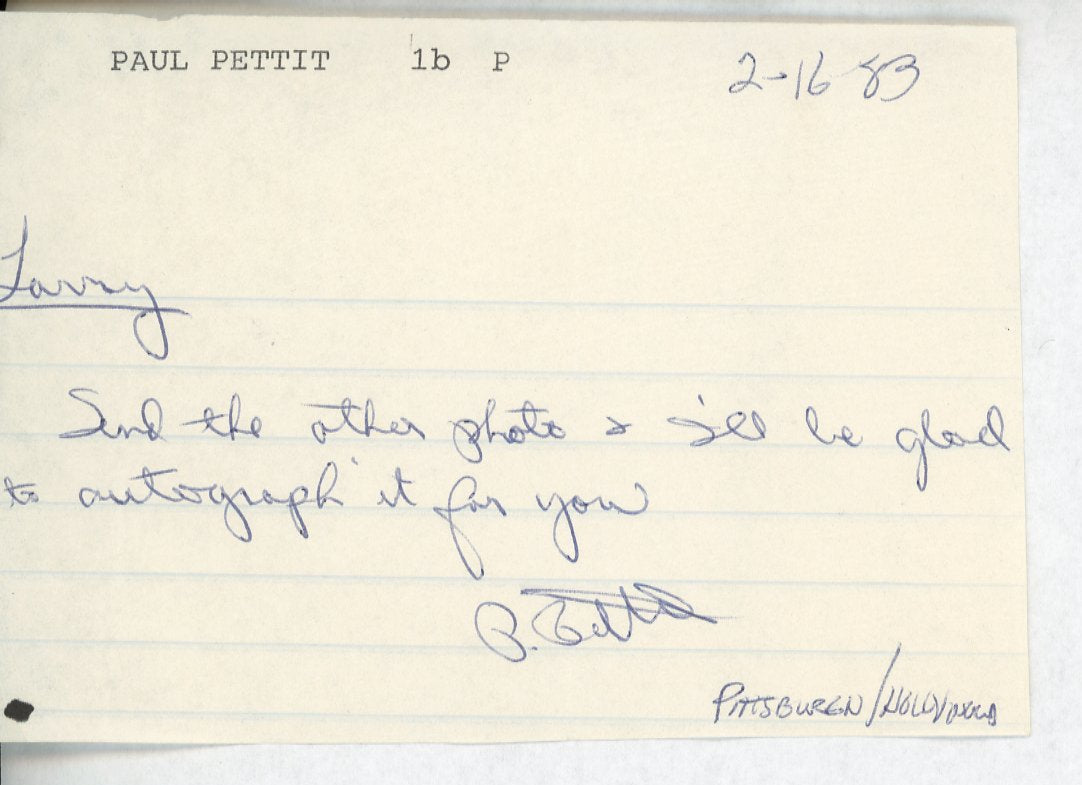 PAUL PETTIT 1b P 2-16 83
Larry
Send the other photo & I'll be glad
to autograph it for you
P. Pettit
PITTSBURGH/HOLLYWOOD